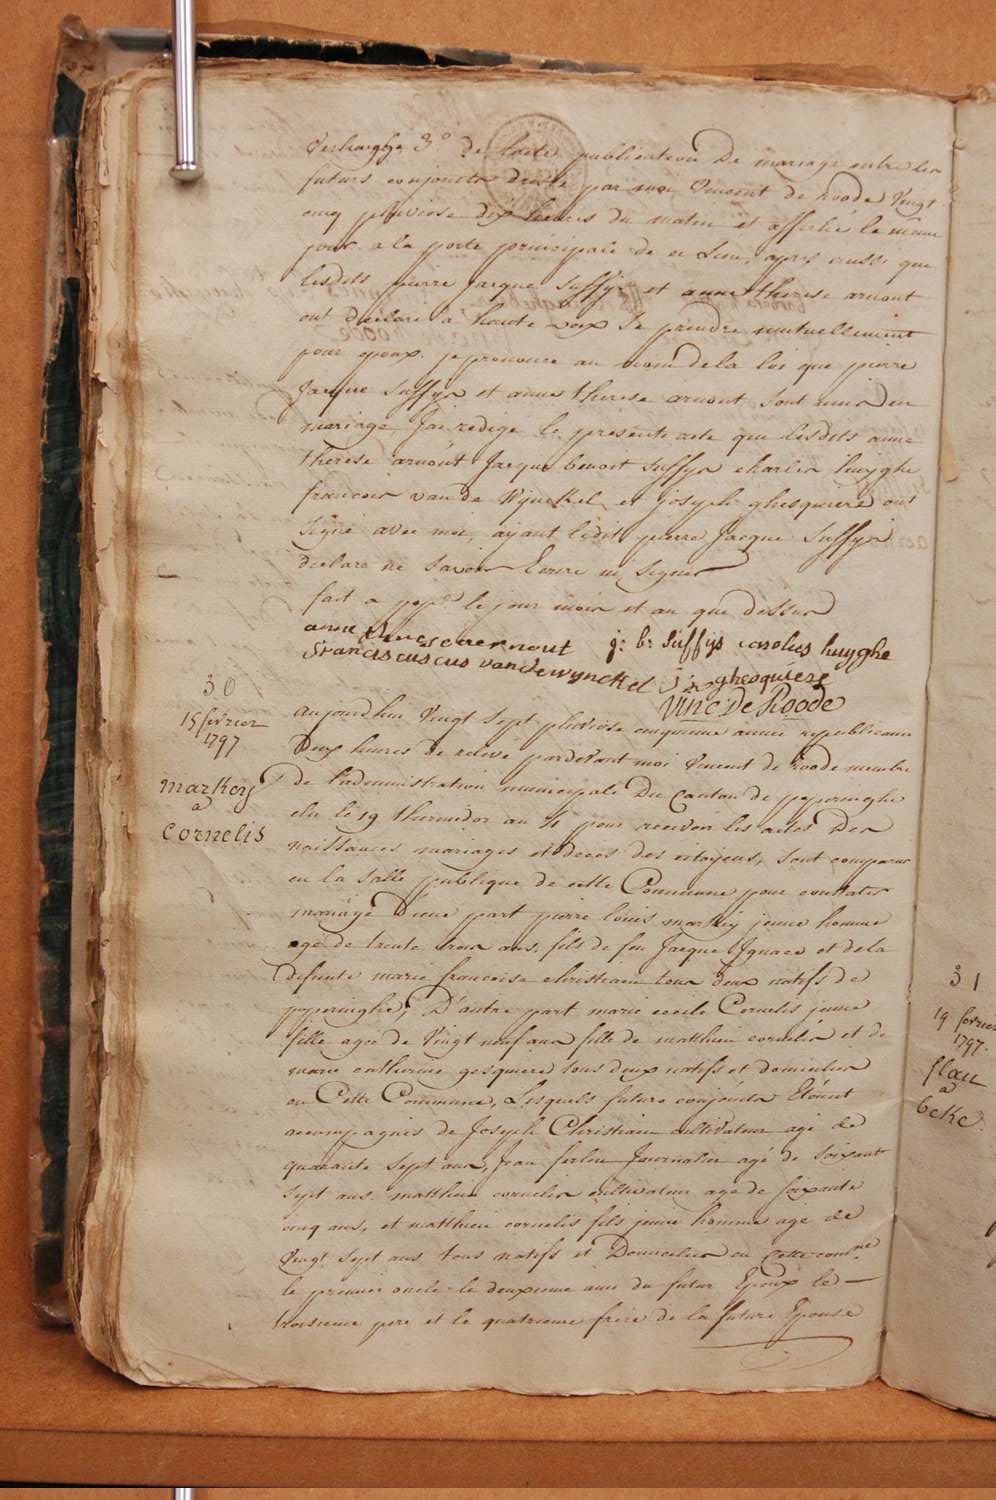 3.º de lacte publication de mariage entre les
futurs conjoints dressé par moi Vincent de Roode Vingt
cinq pluviose dix heures du matin et affiché le même
jour a la porte principale de ce lieu, après aussi que
lesdits pierre Jacque Suffys et anne therese arnout
ont declaré a haute voix se prendre mutuellement
pour epoux. je prononce au nom de la loi que pierre
Jacque Suffys et anne therese arnout sont unis en
mariage J'ai redigé le presente acte que lesdits anne
therese arnout Jacque benoit Suffys charles huyghe
francois vande Wynckel et joseph ghesquiere ont
signé avec moi, ayant ledit pierre Jacque Suffys
declaré ne savoir Ecrire ni signer
fait a pop.e le jour mois et an que dessus
anne j: b: Suffys carolus huyghe
Franciscus vandewynckel j: ghesquiere
Vinc De Roode
30
15 fevrier
1797
markey
a
Cornelis
aujourdhui Vingt Sept pluviose cinquieme année republicaine
Deux heures de relevé pardevant moi Vincent de Roode membre
de l'administration municipale Du Canton de poperinghe
elu le 19 thermidor an 4 pour recevoir les actes Des
naissances mariages et deces des citoyens, sont comparus
en la salle publique de cette Commune pour contracter
mariage D'une part pierre louis markey jeune homme
agé de trente trois ans, fils de feu Jacque Ignace et de la
defunte marie francoise christiaen tous deux natifs de
poperinghe, D'autre part marie cecile Cornelis jeune
fille ageé de Vingt neuf ans fille de matthieu cornelis et de
marie catherine gesquiere tous deux natifs et domiciliés
en Cette Commune, Lesquels futurs conjoints Etoient
accompagnés de Joseph Christiaen cultivateur agé de
quarante Sept ans, Jean ferleu Journalier agé de Soixant
Sept ans. matthieu cornelis cultivateur age de soixante
cinq ans, et matthieu cornelis fils jeune homme agé de
Vingt Sept ans tous natifs et Domiciliés en cette com.ne
le premier oncle le deuxieme ami du futur Epoux le
troisieme pere et le quatrieme frere de la future Epouse
31
19 fevrier
1797.
flau
a
beke.